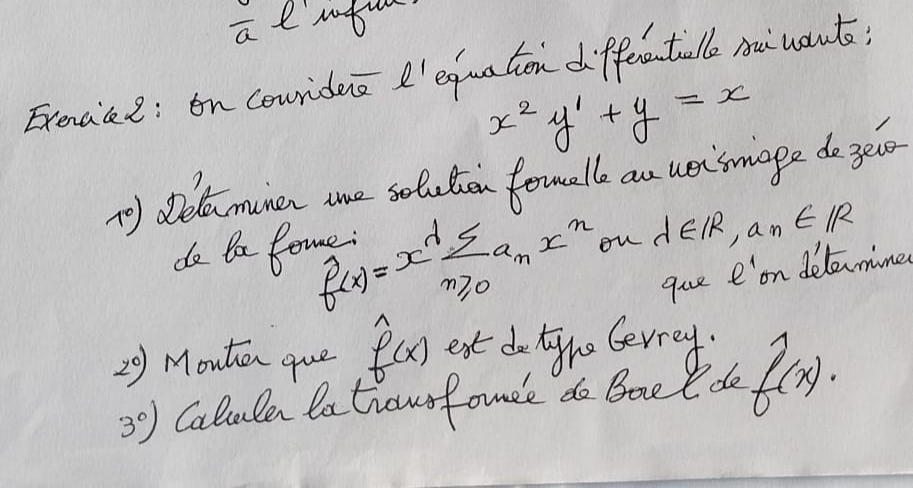 à l'infin
Exercice 2: On considère l'équation différentielle suivante:
x² y' + y = x
1°) Déterminer une solution formelle au voisinage de zéro
de la forme:
f̂(x) = x^d Σ_{n≥0} a_n x^n ou d∈ℝ, a_n ∈ ℝ
que l'on détermine
2°) Montrer que f̂(x) est de type Gevrey.
3°) Calculer la transformée de Borel de f̂(x).